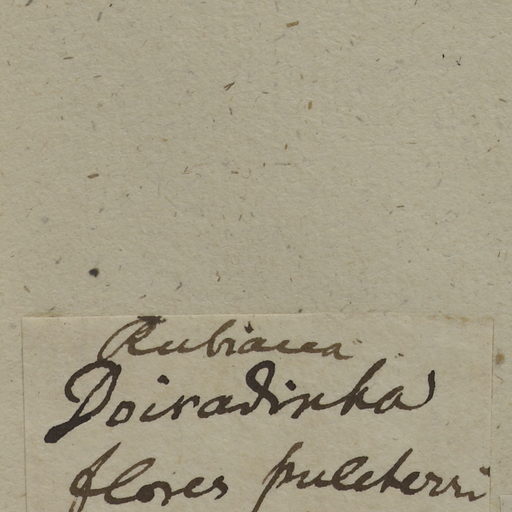 Rubiacea
Doiradinha
flores pulcherri